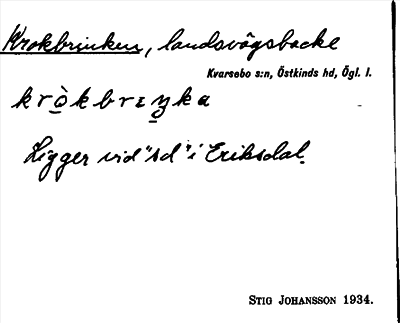 Krokbrinken, landsvägsbacke
Kvarsebo s:n, Östkinds hd, Ögl. l.
Ligger vid "sd" i Eriksdal.
STIG JOHANSSON 1934.